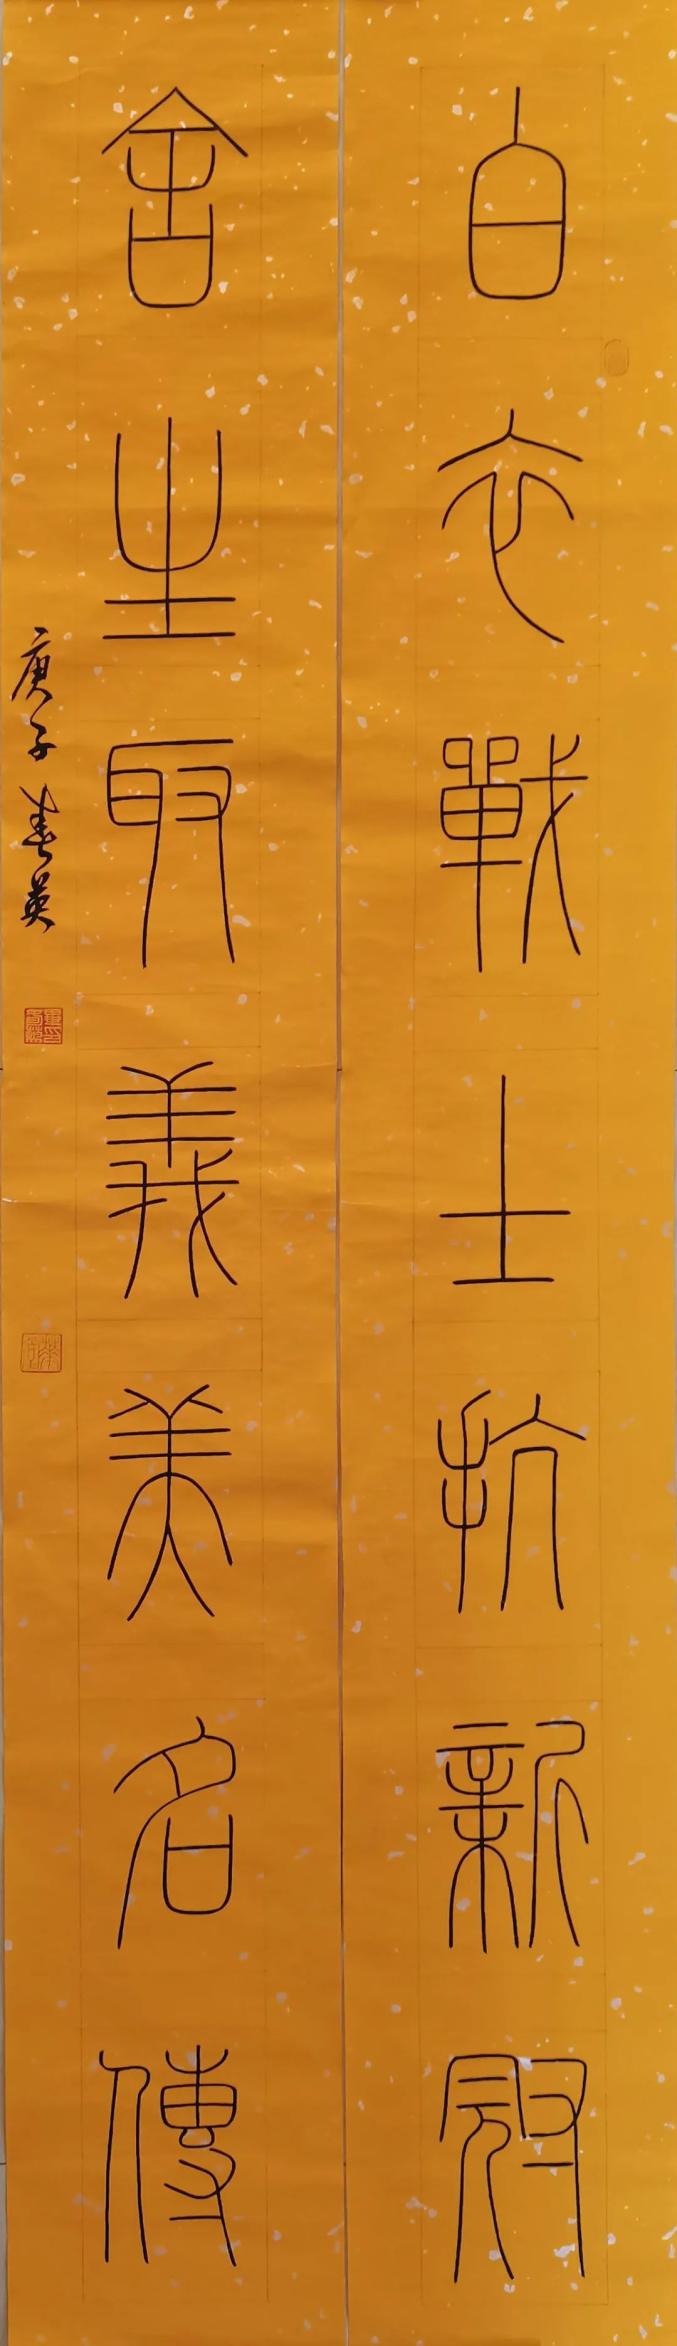 白衣戰士抗新冠
舍生取義美名傳
庚子春英